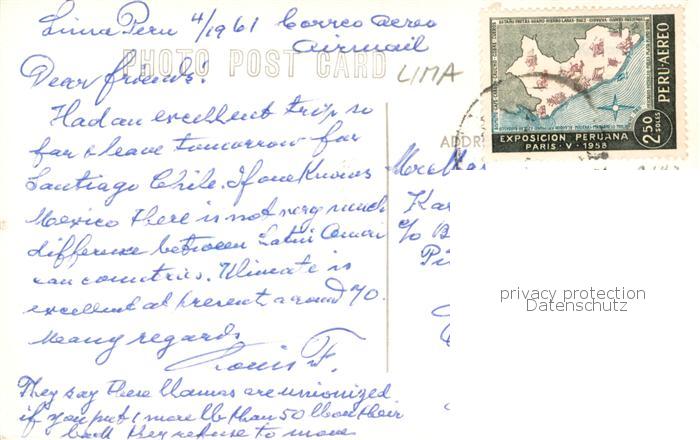 Lima Peru 4/1961 Correo Aereo
Airmail
PHOTO POST CARD
LIMA
Dear friends!
Had an excellent trip so
far & leave tomorrow for
Santiago Chile. If one knows
Mexico there is not very much
difference between Latin Ameri
can countries. Climate is
excellent at present around 70.
Many regards
Louis F.
They say these llamas are unionized
if you put 1 more lb than 50 lb on their
back they refuse to move
ADDR
Mr & Ma
Kar
c/o B
Pi
EXPOSICION PERUANA
PARIS · V · 1958
PERU·AEREO
2.50
SOLES
privacy protection
Datenschutz